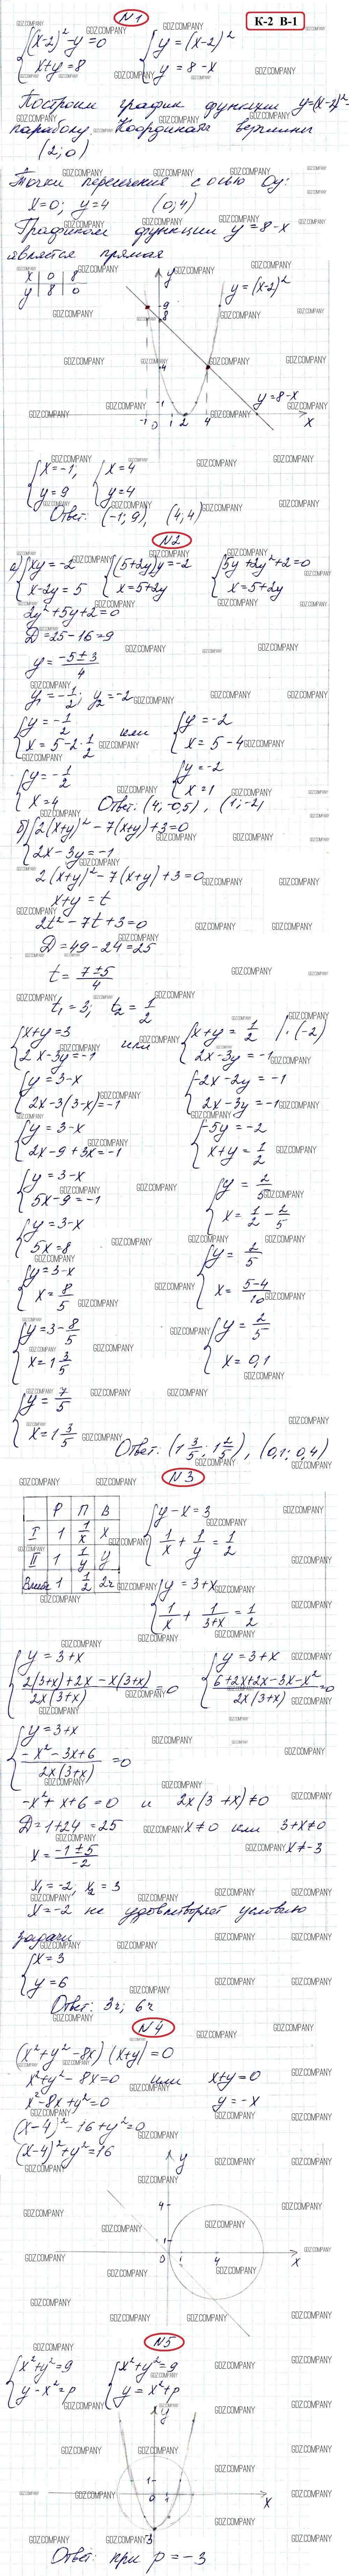 N1
К-2 В-1
{(x-2)²-y=0 {y=(x-2)²
x+y=8 y=8-x
Построим график функции y=(x-2)²-
параболу. Координаты вершины
(2;0)
Точки пересечения с осью Oy:
x=0; y=4 (0;4)
Графиком функции y=8-x
является прямая
x | 0 | 8
y | 8 | 0
y
y=(x-2)²
9
8
4
1
y=8-x
-1 0 1 2 4 x
{x=-1, {x=4
y=9 y=4
Ответ: (-1;9), (4;4)
N2
а) {xy=-2 {(5+2y)y=-2 {5y+2y²+2=0
x-2y=5 x=5+2y x=5+2y
2y²+5y+2=0
D=25-16=9
y=(-5±3)/4
y₁=-1/2; y₂=-2
{y=-1/2 или {y=-2
x=5-2·1/2 x=5-4
{y=-1/2 {y=-2
x=4 x=1
Ответ: (4;-0,5), (1;-2)
б) {2(x+y)²-7(x+y)+3=0
2x-3y=-1
2(x+y)²-7(x+y)+3=0
x+y=t
2t²-7t+3=0
D=49-24=25
t=(7±5)/4
t₁=3; t₂=1/2
{x+y=3 или {x+y=1/2 |·(-2)
2x-3y=-1 2x-3y=-1
{y=3-x {-2x-2y=-1
2x-3(3-x)=-1 2x-3y=-1
{y=3-x {-5y=-2
2x-9+3x=-1 x+y=1/2
{y=3-x {y=2/5
5x-9=-1 x=1/2-2/5
{y=3-x {y=2/5
5x=8 x=(5-4)/10
{y=3-x {y=2/5
x=8/5 x=0,1
{y=3-8/5
x=1 3/5
{y=7/5
x=1 3/5
Ответ: (1 3/5; 1 2/5), (0,1; 0,4)
N3
Р П В
I 1 1/x x
II 1 1/y y
Вместе 1 1/2 2ч
{y-x=3
1/x+1/y=1/2
{y=3+x
1/x+1/(3+x)=1/2
{y=3+x {y=3+x
(2(3+x)+2x-x(3+x))/(2x(3+x))=0 (6+2x+2x-3x-x²)/(2x(3+x))=0
{y=3+x
(-x²-3x+6)/(2x(3+x))=0
-x²+x+6=0 и 2x(3+x)≠0
D=1+24=25 x≠0 или 3+x≠0
x=(-1±5)/-2 x≠-3
x₁=-2, x₂=3
x=-2 не удовлетворяет условию
задачи
{x=3
y=6
Ответ: 3ч; 6ч
N4
(x²+y²-8x)(x+y)=0
x²+y²-8x=0 или x+y=0
x²-8x+y²=0 y=-x
(x-4)²-16+y²=0
(x-4)²+y²=16
y
4
1
0 1 4 x
N5
{x²+y²=9 {x²+y²=9
y-x²=p y=x²+p
y
1
0 1 x
-3
Ответ: при p=-3
GDZ.COMPANY